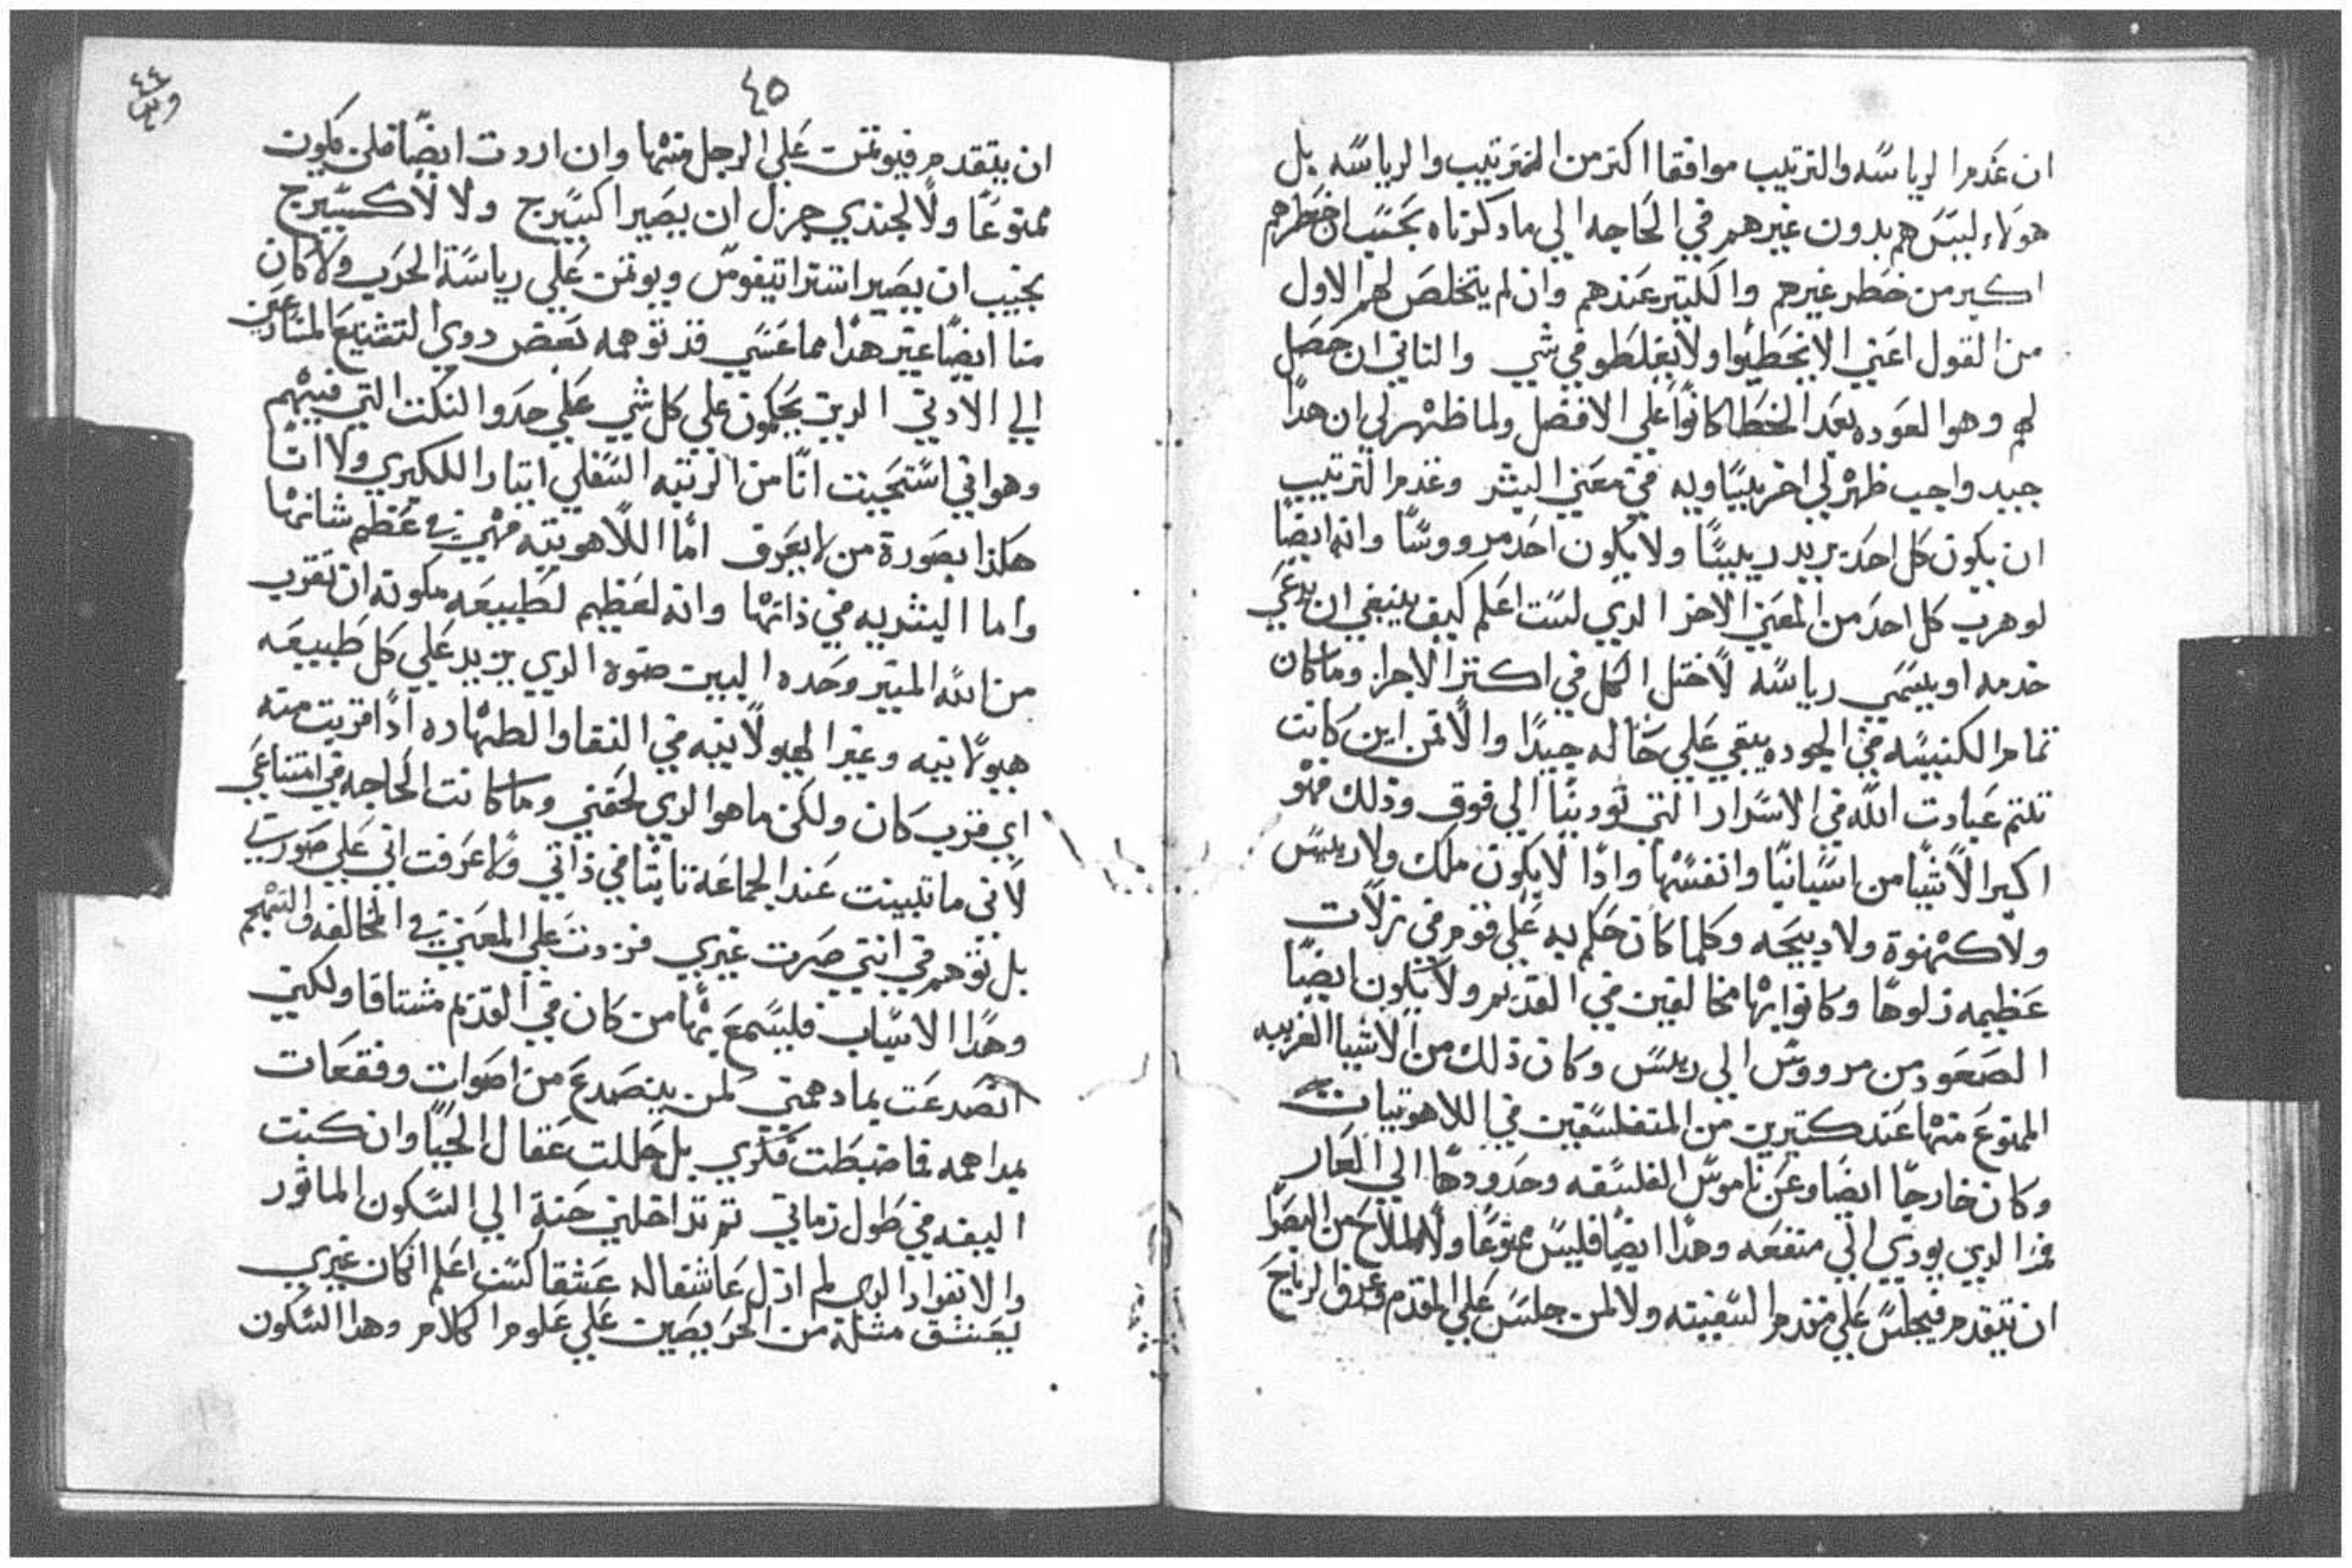 ان عَدم الرياسَه والترتيب موافقا اكتر من الترتيب والرياسَه بل
هولاء ليسَ هم بدون غيرهم في الحَاجه الي ما دكرناه بحَسَب ان خَطرهم
اكبر من خطر غيرهم والكبير عَندهم وان لم يتخلصَ لهم الاول
من القول اعَني الا يخطيوا ولا يغلطو في شي والتاني ان حصَل
لهم وهوا لعَوده بعَد الخطا كانوا عَلي الافضل ولما ظهر لي ان هدا
جيد واجب ظهر لي اخر يسَاويه في معَني الشر وعَدم الترتيب
ان يكون كل احَد يريد ريسًا ولا يكون احَد مرووسًا وانه ايضًا
لو هرب كل احَد من المعَني الاخر الدي لسَت اعَلم كيف ينبغي ان يدعَي
خدمه او يسَمي رياسَه لاختل الكل في اكتر الاجزا وما كان
تمام الكنيسَه في الجوده يبقي عَلي حَاله جيدًا والا فمن اين كانت
تلتم عَبادت الله في الاسَرار التي تودينا الي فوق وذلك فهو
اكبر الاشيا من اسَبابنا وانفسَها وادًا لا يكون ملك ولا ريسَ
ولا كهنوة ولا دبيحَه وكلما كان حَكم به عَلي قوم في زلات
عَظيمه زلوها وكانوا بها مخالفين في القديم ولا يكون ايضًا
الصَعَود من مرووسَ الي ريسَ وكان ذلك من الاشيا الغريبه
الممنوعَ منها عَند كتيرين من المتفلسَفين في اللاهوتيات
وكان خارجًا ايضَا وعَن ناموسَ الفلسَفه وحَدودها الي العَار
فمَن الدي يودي الي منفعَه وهدا ايضًا فليسَ ممنوعَا ولا للملاح من البصَرا
ان يتقدم فيجلسَ عَلي مقدم السَفينه ولا لمن جلسَ عَلي المقدم وعَرف الرياحَ
٤٤
٤٥
ان يتقدم فيوتمن عَلي الرجل منها وان اردت ايضًا فلن يكون
ممنوعَا ولا لجندي جزل ان يصَير اكسيرج ولا لاكسيرج
نجيب ان يصَير استراتيغوسَ ويوتمن عَلي رياسَة الحرب ولا كان
منا ايضًا غير هدا مما عَسَي قد توهمه بعَض دوي التشنيعَ المسارعَين
الي الادني الدين يحَكمون علي كل شي عَلي حدو النكت التي فيهم
وهو اني اسَتحَييت انا من الرتبه السَفلي ايتارا للكبري ولا انا
هكذا بصَورة من لا يعَرف اما اللاهوتيه فهي في عَظم شانها
واما البشريه في ذاتها وانه لعَظيم لطبيعَه مكونه ان تقرب
من الله المنير وحَده البيت ضوه الدي يزيد عَلي كل طبيعَه
هيولانيه وغير الهيولانيه في النقا والطهاره ادًا قربت منه
اي قرب كان ولكن ما هو الدي لحَقني وما كانت الحَاجه في امتناعَي
لاني ما تبينت عَند الجماعَة تابتا في ذاتي ولا عَرفت اني عَلي صَورتي
بل توهم في انني صَرت غيري فزدت عَلي المعَني في المخالفه والتهجم
وهدا الاسَباب فليسَمعَ بها من كان في القديم مشتاقا ولكني
انصَدعَت بما دهمني لمن ينصَدعَ من اصَوات وفقعَات
بمداهمه فما ضبطت فكري بل حللت عَقال الحَيا وان كنت
اليفه في طول زماني تم تداخلني حَنة الي السَكون الماتور
والانفراد الدي لم ازل عَاشقا له عَشقا لسَت اعَلم ان كان غيري
يعَشق مثله من الحَريصَين عَلي عَلوم الكلام وهدا السَكون